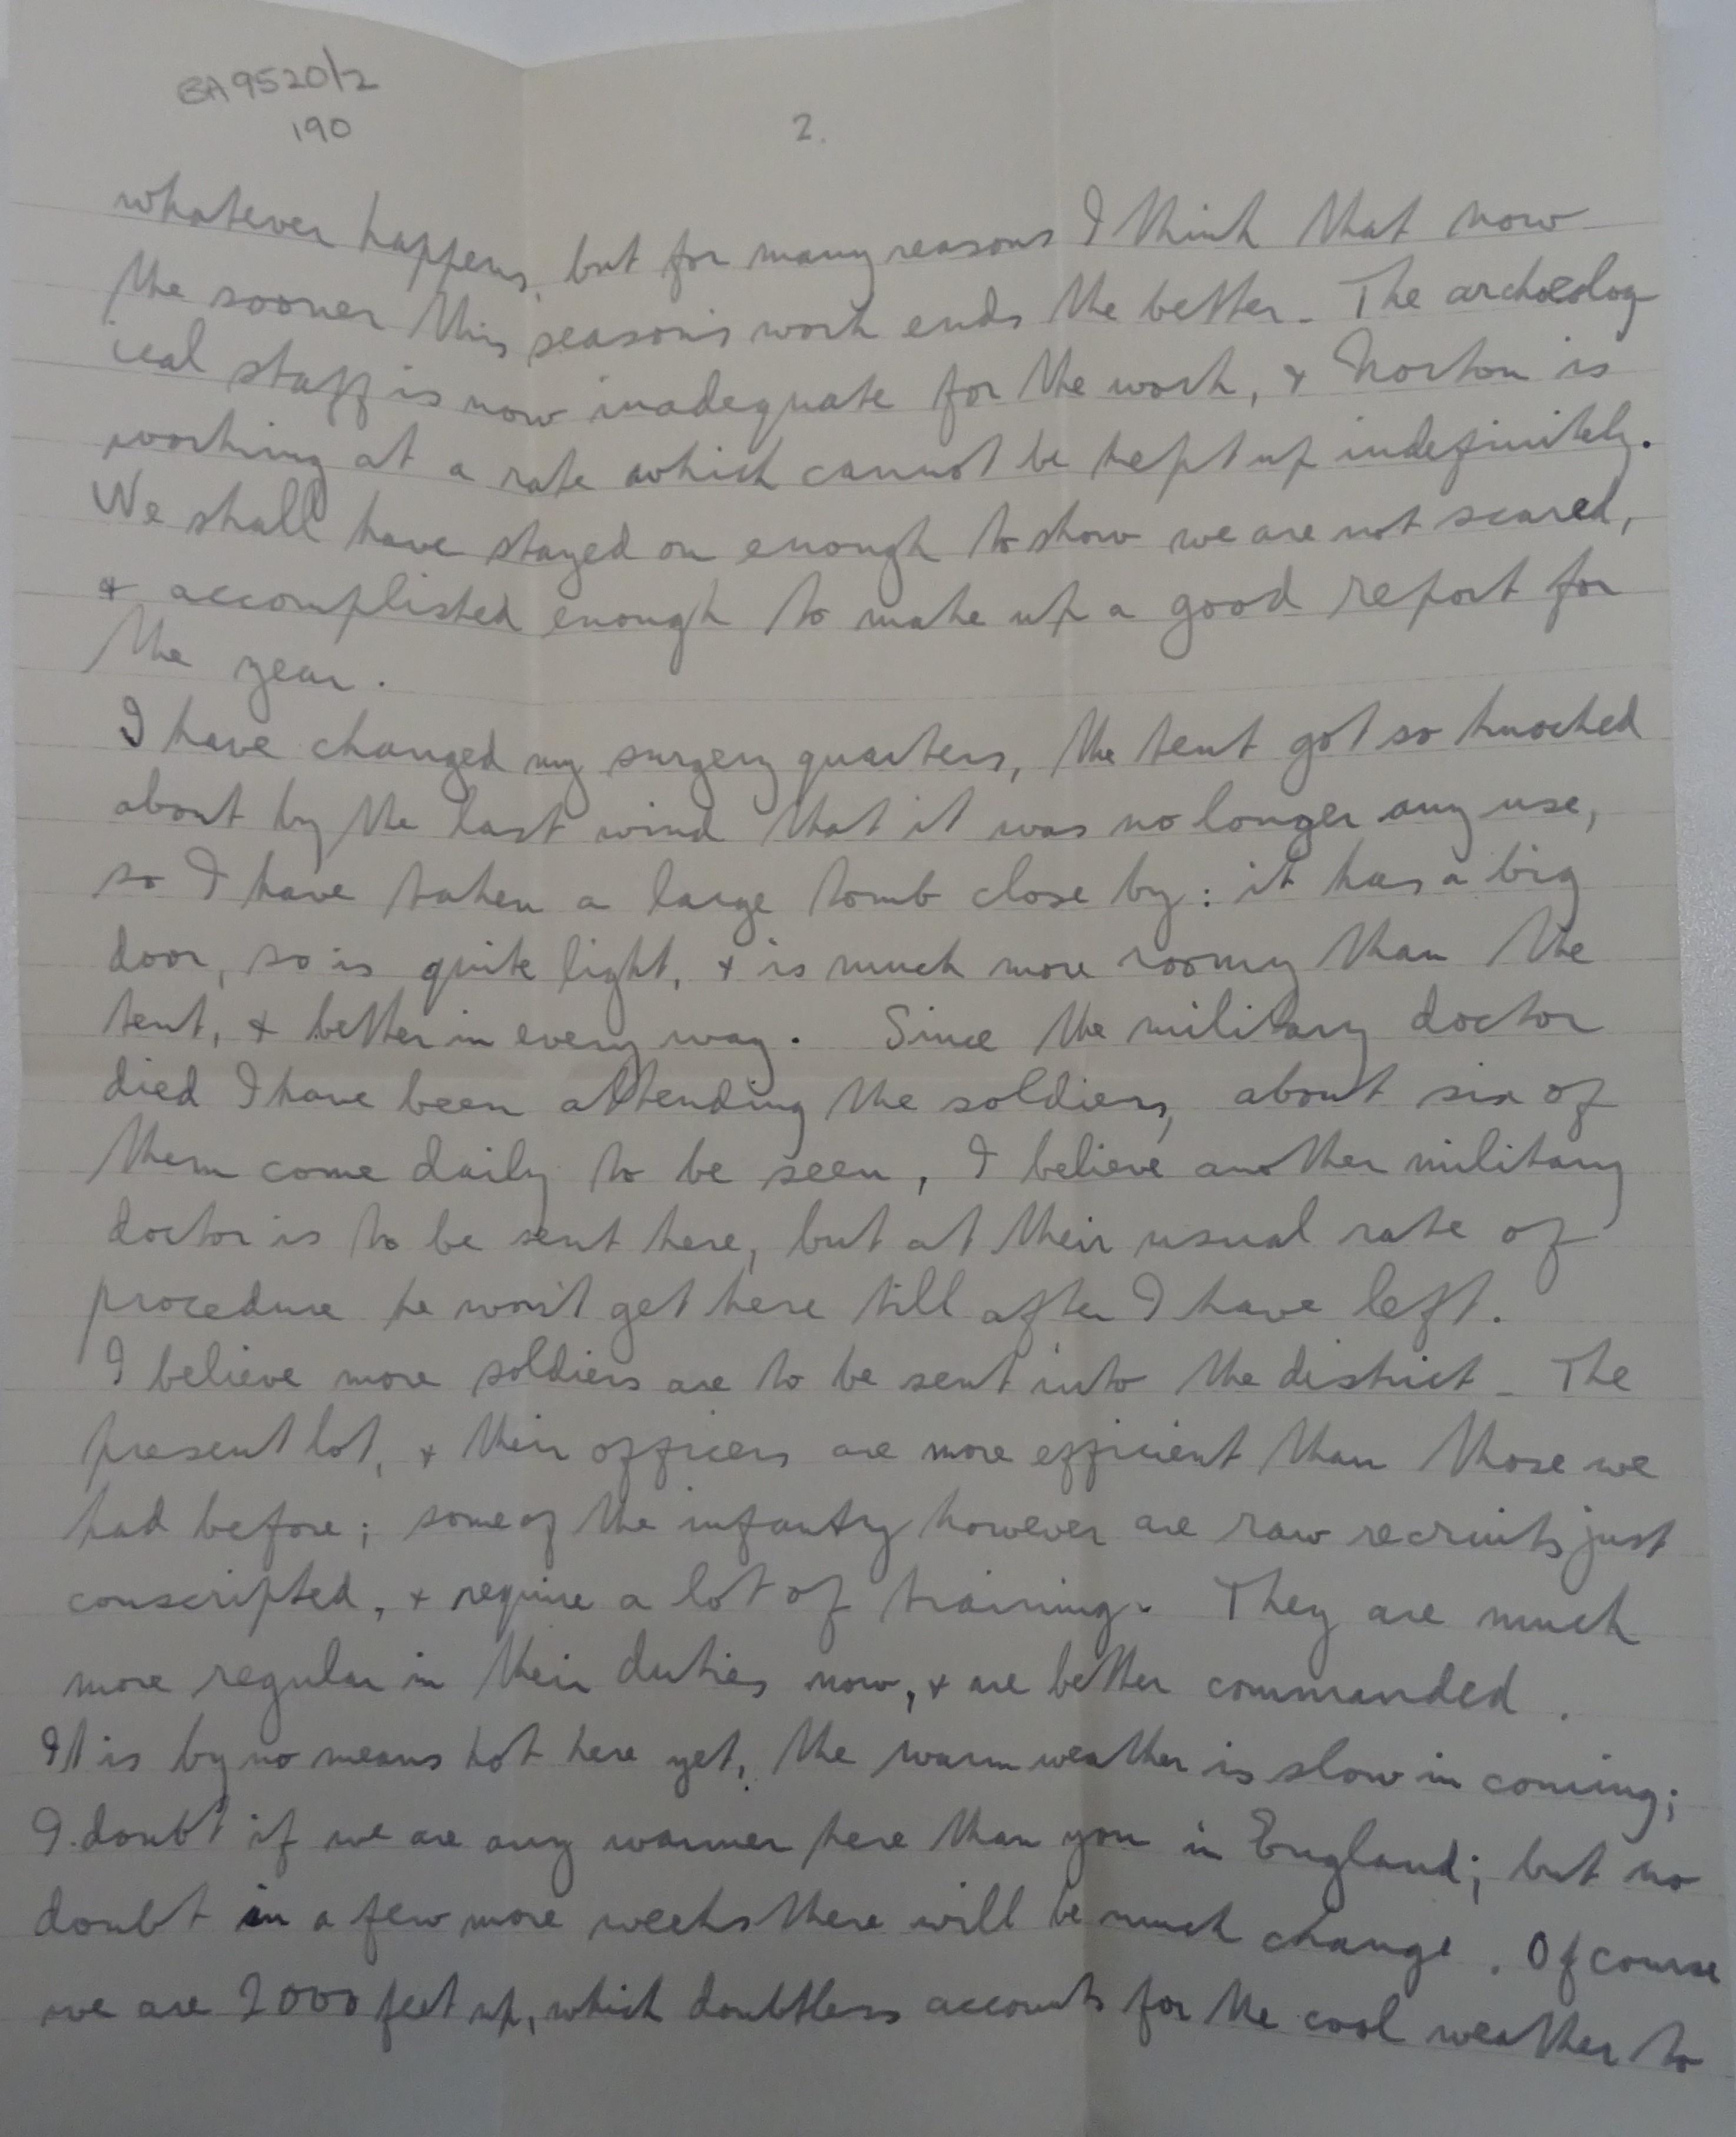 BA9520/2
190
2.
whatever happens, but for many reasons I think that now
the sooner this season's work ends the better. The archæolog
ical staff is now inadequate for the work, & Norton is
working at a rate which cannot be kept up indefinitely.
We shall have stayed on enough to show we are not scared,
& accomplished enough to make up a good report for
the year.
I have changed my surgery quarters, the tent got so knocked
about by the last wind that it was no longer any use,
so I have taken a large tomb close by: it has a big
door, so is quite light, & is much more roomy than the
tent, & better in every way. Since the military doctor
died I have been attending the soldiers, about six of
them come daily to be seen, I believe another military
doctor is to be sent here, but at their usual rate of
procedure he won't get here till after I have left.
I believe more soldiers are to be sent into the district. The
present lot, & their officers are more efficient than those we
had before; some of the infantry however are raw recruits just
conscripted, & require a lot of training. They are much
more regular in their duties now, & are better commanded.
It is by no means hot here yet, the warm weather is slow in coming;
I doubt if we are any warmer here than you in England; but no
doubt in a few more weeks there will be much change. Of course
we are 2000 feet up, which doubtless accounts for the cool weather to